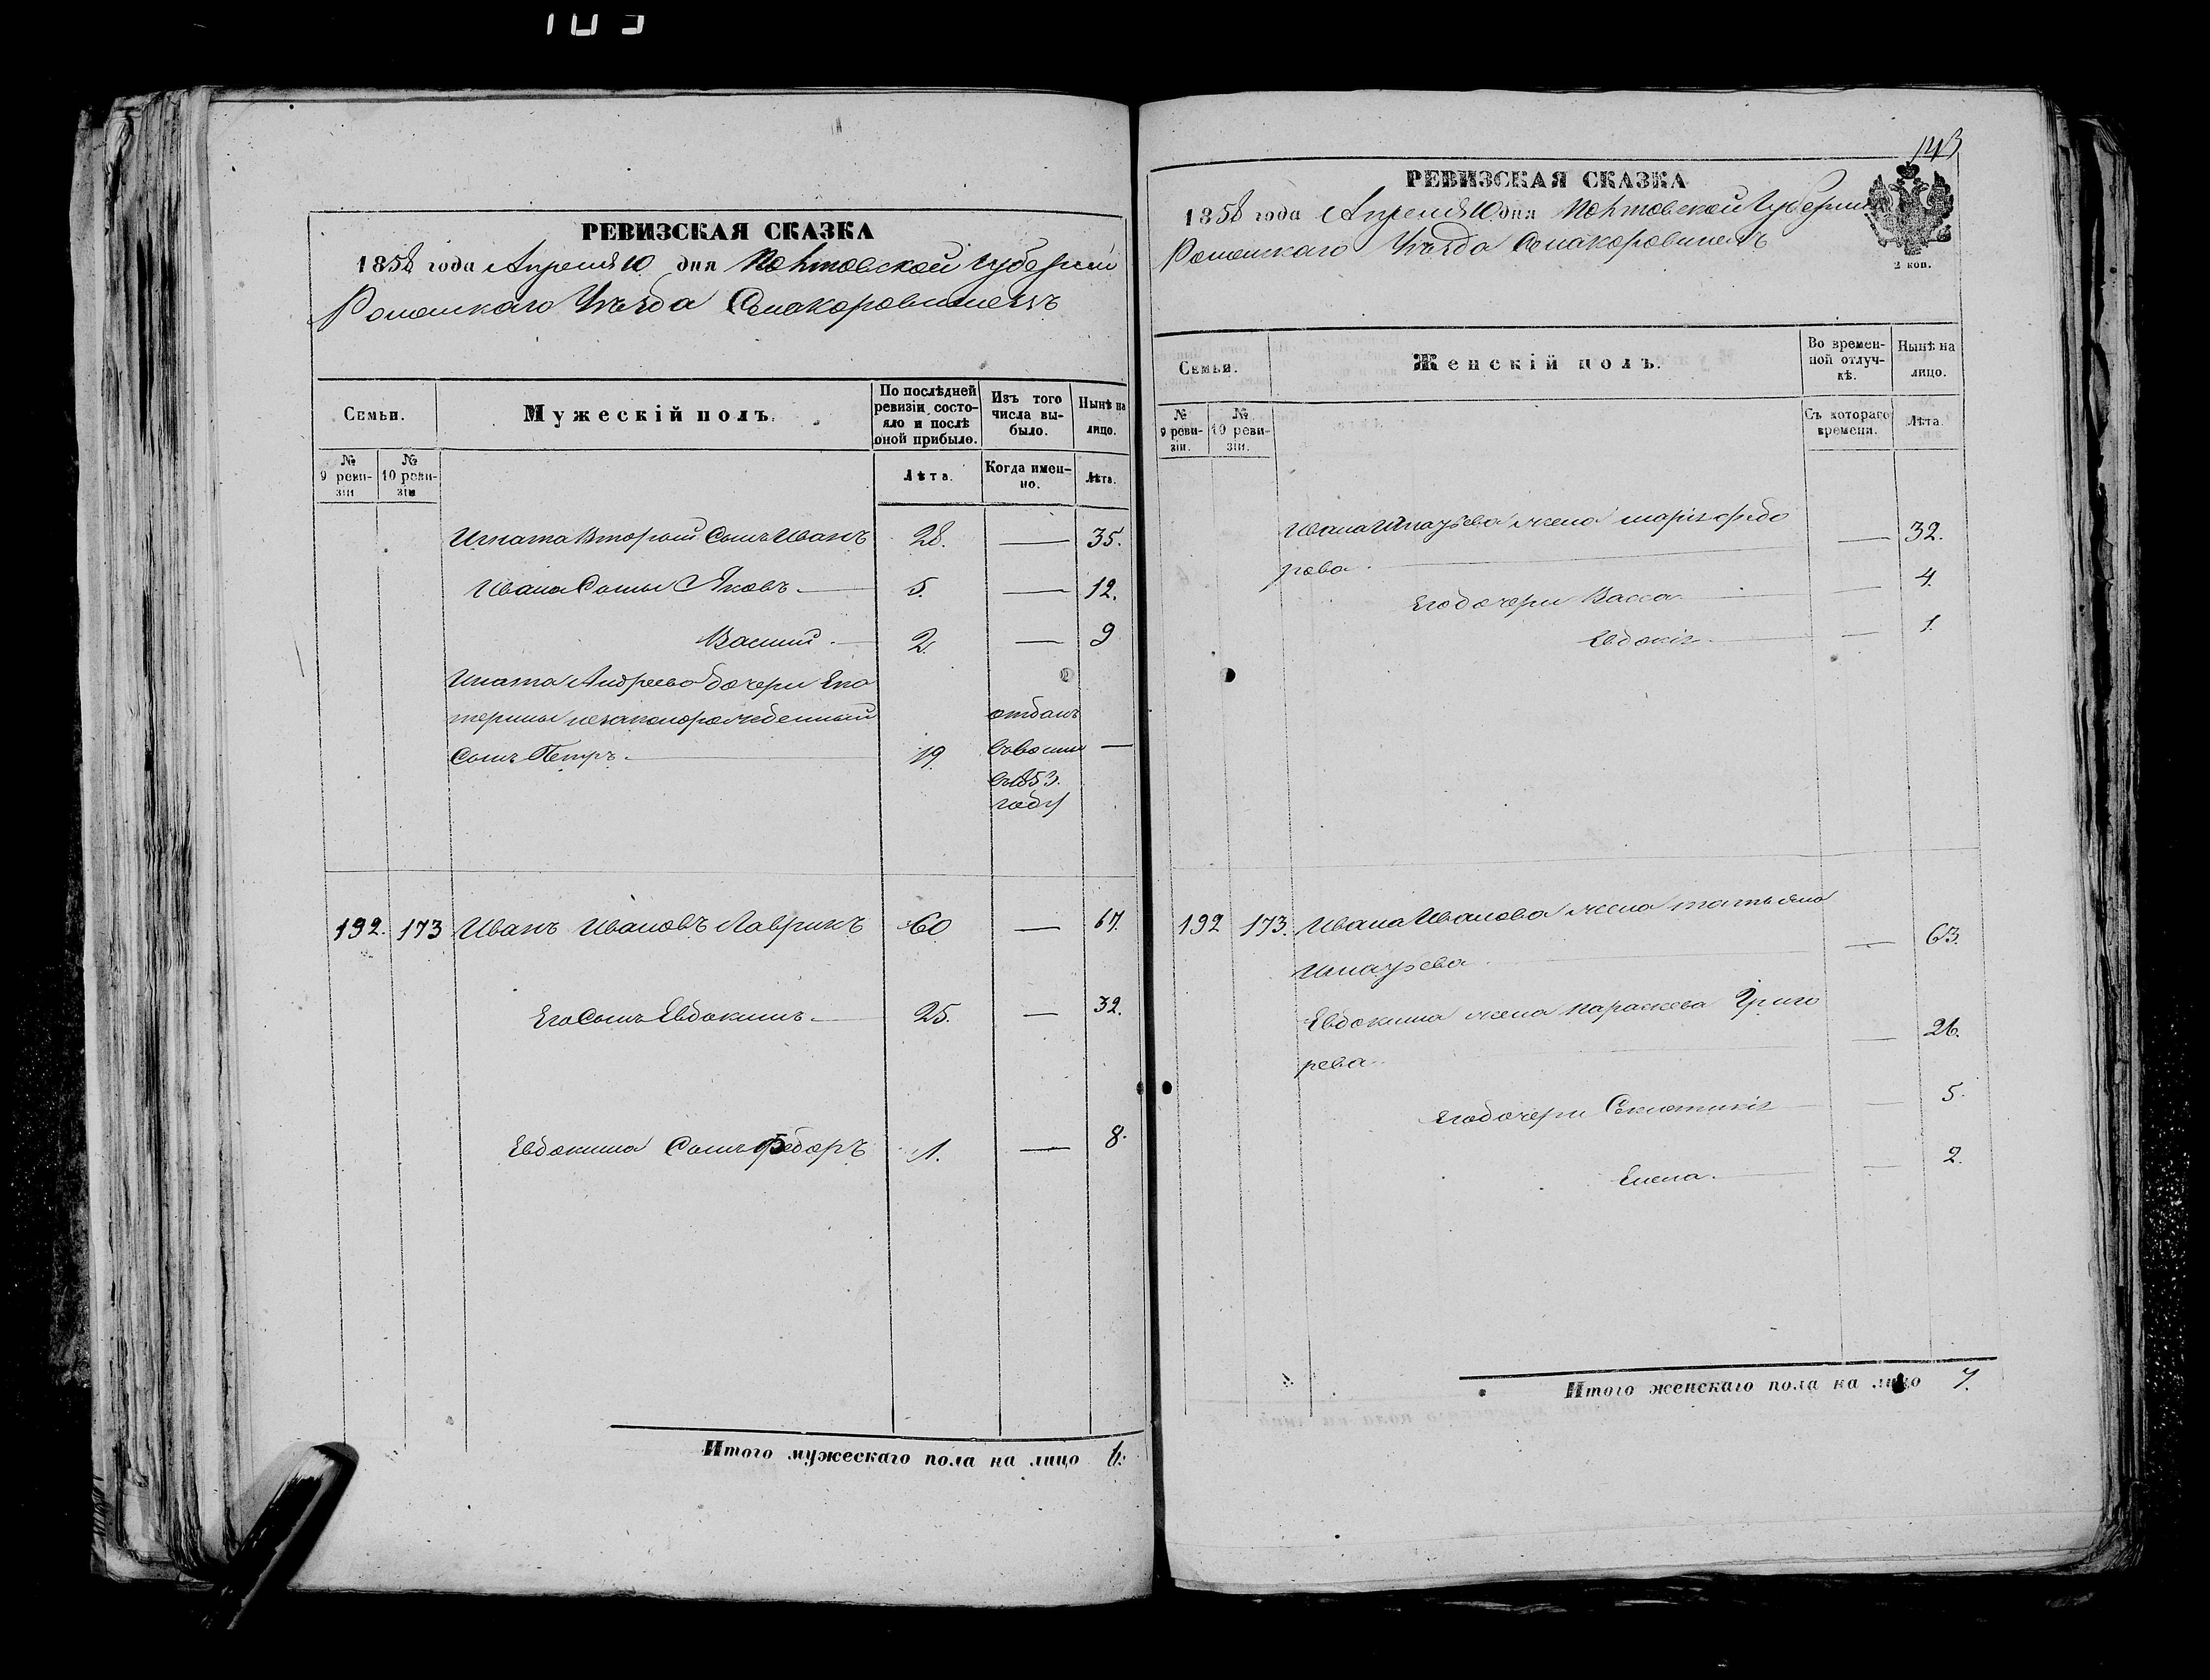 103
РЕВИЗСКАЯ СКАЗКА
1858 года Апреля 10 дня Полтавской Губернии
Роменскаго Уезда
По послѣдней ревизіи состояло и послѣ оной прибыло.
Изъ того числа выбыло.
Нынѣ на лицо.
Семьи.
Мужескій полъ.
№ 9 ревизіи
№ 10 ревизіи
Лѣта.
Когда именно.
Лѣта.
Игната Вторый Сынъ Иванъ 28. — 35.
Ивана Сыны Яковъ. 5. — 12.
Василий. 2. — 9
Игната Андреева дочери Ека
терины незаконорожденный отданъ
Сынъ Петръ. 19. —
в 1853.
году
192. 173 Иванъ Ивановъ Лаврикъ 60 — 67.
Его Сынъ Евдокимъ. 25. — 32.
Евдокима Сынъ Федоръ 1. — 8.
Итого мужескаго пола на лицо 6.
143
РЕВИЗСКАЯ СКАЗКА
1858 года Апреля 10 дня Полтавской Губернии
Роменскаго Уезда
2 коп.
Семьи.
Женскій полъ.
Во временной отлучкѣ.
Нынѣ на лицо.
№ 9 ревизіи.
№ 10 ревизіи.
Съ котораго времени.
Лѣта.
Ивана Игнатьева жена марія федо
рова. — 32.
Его дочери Васса. — 4.
Евдокія. — 1.
192 173. Ивана Иванова жена татьяна
Игнатьева. — 63.
Евдокима жена параскева Григо
рева. — 26.
Его дочери — 5.
Елена. — 2.
Итого женскаго пола на лицо 7.